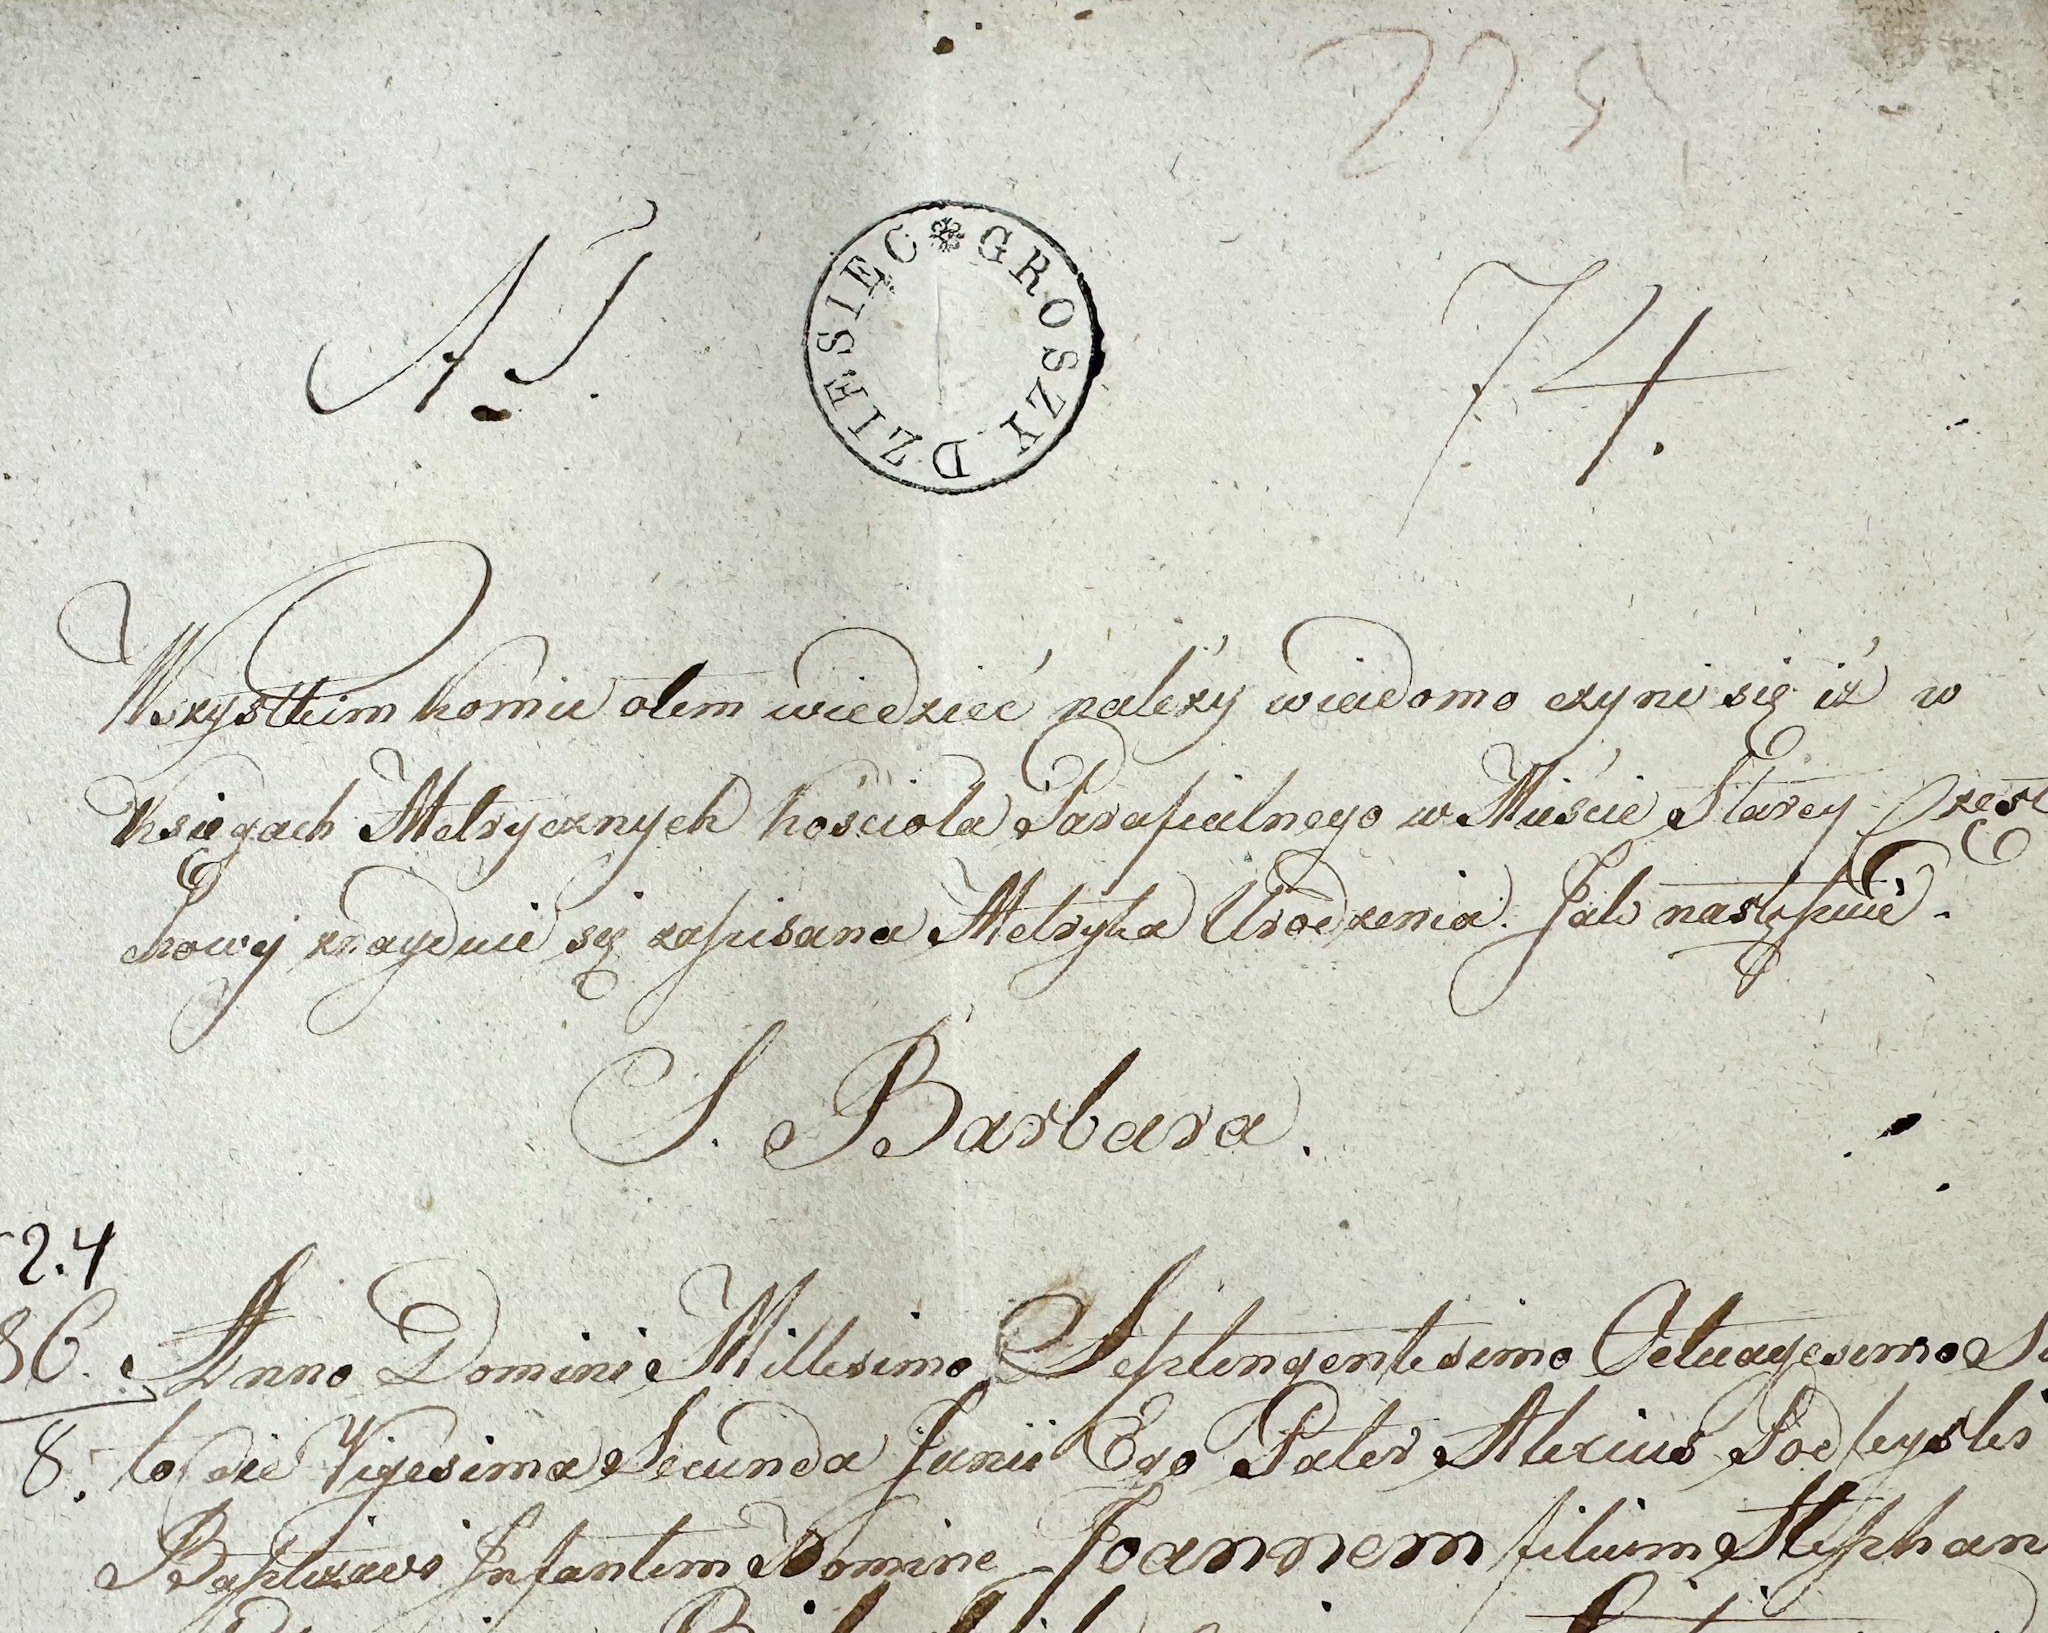 A J.
GROSZY DZIESIĘC
74.
Wszystkim komu otem wiedzieć należy wiadomo czyni się iż w
Księgach Metrycznych Kościoła Parafialnego w Mieście Starey Częst
howy znayduie się zapisana Metryka Urodzenia. Jak następuie.
S. Barbara.
2.4
86. Anno Domini Millesimo Septengentesimo Octuagesimo
8. to die Vigesima Secunda Junii Ego Pater Alexius
Baptizavi Infantem Nomine Joannem filium Stephan